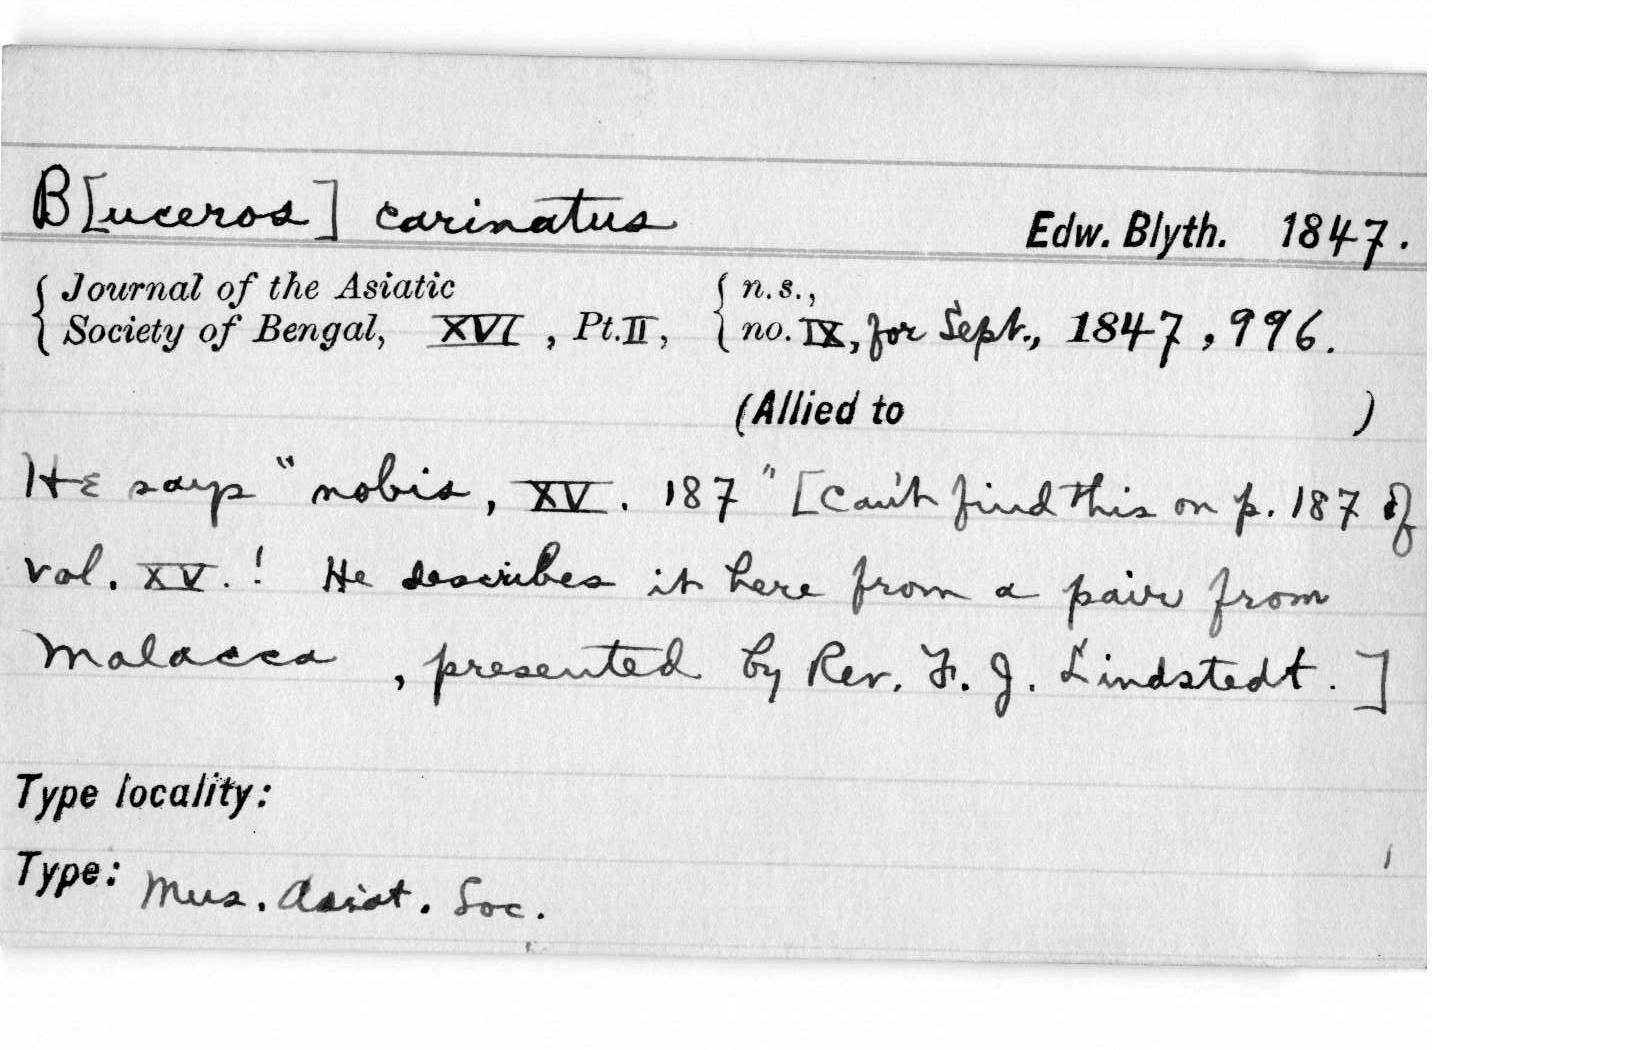 B[uceros] carinatus Edw. Blyth. 1847.
Journal of the Asiatic n.s.,
Society of Bengal, XVI, Pt. II, no. IX, for Sept., 1847, 996.
(Allied to )
He says "nobis, XV. 187" [Can't find this on p. 187 of
vol. XV.! He describes it here from a pair from
Malacca, presented by Rev. F. J. Lindstedt.]
Type locality:
Type: Mus. Asiat. Soc.